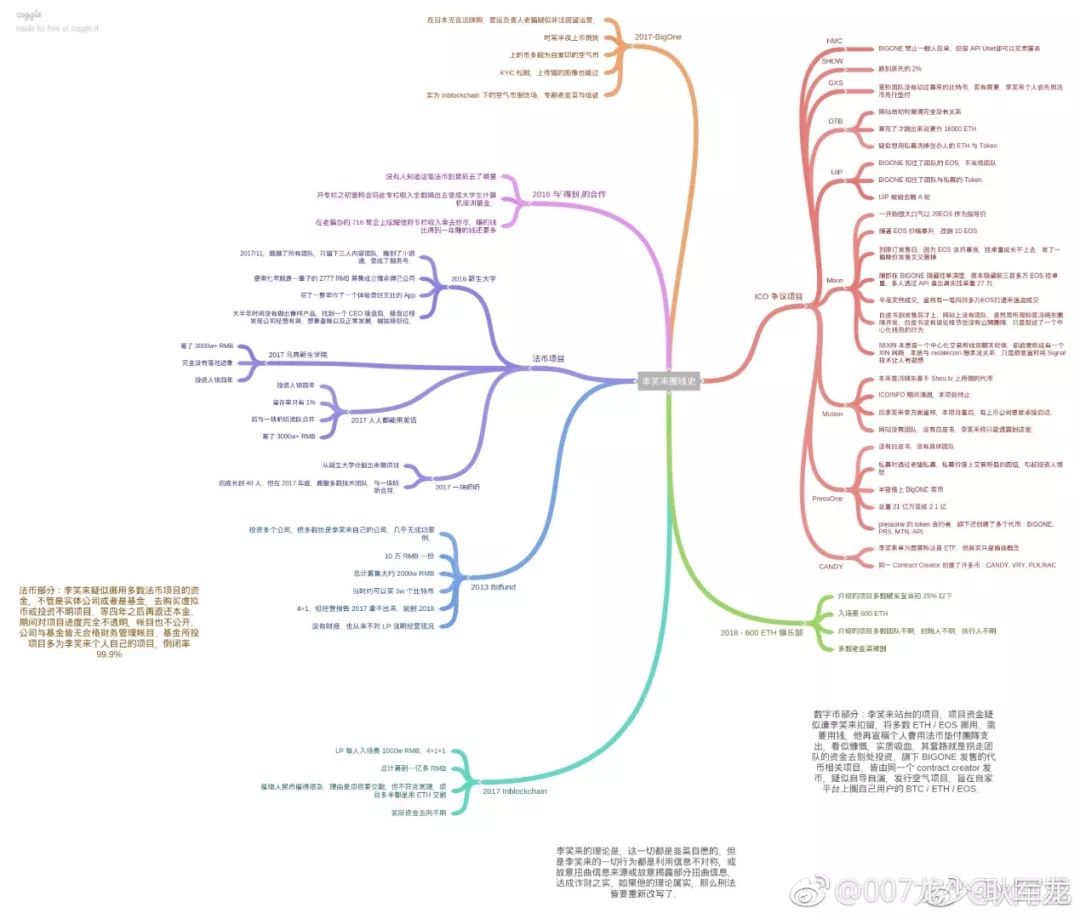 coggle
made for free at coggle.it
在日本无合法牌照，营运负责人老猫疑似非法居留运营。
时常半夜上币倒货
上的币多数为自家印的空气币
KYC 松散，上传猫的图像也能过
实为 Inblockchain 下的空气币倒货场，专割老韭菜与低端
2017-BigOne
没有人知道这笔法币到最后去了哪里
开专栏之初宣称会将此专栏收入全数捐出去做成大学生计算
机培训基金。
在老猫办的 716 聚会上炫耀他将专栏收入拿去炒币，赚的钱
比得到一年赚的钱还要多
2016 与「得到」的合作
2017/11，
使用七年就是一辈子的 2777 RMB 筹集成立情非得已公司
花了一整年作了一个体验奇烂无比的 App
大半年时间没有做出像样产品，找到一个 CEO 接盘后，接盘过程
2016 新生大学
筹了 3000w+ RMB
完全没有落地迹象
投资人锁四年
2017 马克新生学院
投资人锁四年
留存率只有 1%
后与一块听听团队合并
筹了 3000w+ RMB
2017 人人都能用英语
从新生大学分割出来做项目
后成长到 40 人，但在 2017 年底，裁撤多数技术团队，与一块听
听合并。
2017 一块听听
法币项目
李笑来圈钱史
投资多个公司，但多数也是李笑来自己的公司，几乎无成功案
例。
10 万 RMB 一份
总计募集大约 2000w RMB
当时约可以买 3w 个比特币
4+1，但经营报告 2017 拿不出来，延到 2018
没有财报，也从来不对 LP 说明经营现况
2013 Bitfund
LP 每人入场费 1000w RMB，4+1+1
总计募到一亿多 RMB
催缴人民币催得很急，理由是项目要交割，但不符合常理，项
目多半都是用 ETH 交割
实际资金去向不明
2017 Inblockchain
HMC
BIGONE 禁止一般人挂单，但是 API User却可以买卖屠杀
SHOW
跌到原先的 2%
GXS
宣称团队没有动过募来的比特币，若有需要，李笑来个人会先用法
币先行垫付
OTB
网站启动时撇清完全没有关系
筹完了才跳出来说要分 16000 ETH
疑似想用私募洗掉创办人的 ETH 与 Token
UIP
BIGONE 扣住了团队的 EOS，不发给团队
BIGONE 扣住了团队与私募的 Token
UIP 被迫去融 A 轮
Mixin
一开始很大口气以 20EOS 作为指导价
随着 EOS 价格暴升，改到 10 EOS
到原订发售日，因为 EOS 该月暴涨，挂单量成长不上去，发了一
随即在 BIGONE 隐藏挂单深度，原本隐藏前三百多万 EOS 挂单
量，多人透过 API 查出真实挂单量 27 万。
半夜突然成交，宣称有一笔四百多万EOS打进来强迫成交
白皮书到发售后才上，网站上没有团队，虽然众所周知是冯晓东团
MIXIN 本质是一个中心化交易所钱包聊天软体，
XIN 网路，本质与 mobilecoin 根本没关系，只是故意宣称用 Signal
技术让人有遐想
Motion
本来是冯晓东基于 Shou.tv 上所做的代币
ICOINFO 期间清退，本项目终止
后李笑来单方面宣称，本项目重启，有上市公司愿意承接启动。
网站没有团队，没有白皮书，李笑来称只能透露到这里。
PressOne
没有白皮书，没有具体团队
私募时透过老猫私募，私募价是上交易所后的四倍，引起投资人愤
怒
半夜偷上 BigONE 卖币
总量 21 亿万变成 2.1 亿
pressone 的 token 合约者，旗下还创建了多个代币：BIGONE,
PRS, MTN, API,
CANDY
李笑来单方面宣称这是 ETF，但其实只是偷换概念
同一 Contract Creator 创建了许多币：CANDY, VRY, PLK,RAC
ICO 争议项目
介绍的项目多数破发至当初 25% 以下
入场费 600 ETH
介绍的项目多数团队不明，创始人不明，执行人不明
多数老韭菜被割
2018 - 600 ETH 俱乐部
法币部分：李笑来疑似挪用多数法币项目的资
金，不管是实体公司或者是基金，去购买虚拟
币或投资不明项目，等四年之后再返还本金，
期间对项目进度完全不透明，帐目也不公开。
公司与基金皆无合格财务管理帐目，基金所投
项目多为李笑来个人自己的项目，倒闭率
99.9%
数字币部分：李笑来站台的项目，项目资金疑
似遭李笑来扣留，将多数 ETH / EOS 挪用，需
要用钱，他再宣稱个人會用法币垫付團隊支
出，看似慷慨，实质吸血，其套路就是拐走团
队的资金去别处投资。旗下 BIGONE 发售的代
币相关项目，皆由同一个 contract creator 发
币，疑似自导自演，发行空气项目，旨在自家
平台上圈自己用户的 BTC / ETH / EOS。
李笑来的理论是，这一切都是韭菜自愿的。但
是李笑来的一切行为都是利用信息不对称，或
故意扭曲信息来源或故意揭露部分扭曲信息，
达成诈财之实。如果他的理论属实，那么刑法
皆要重新改写了。
@007龙少@耿军龙